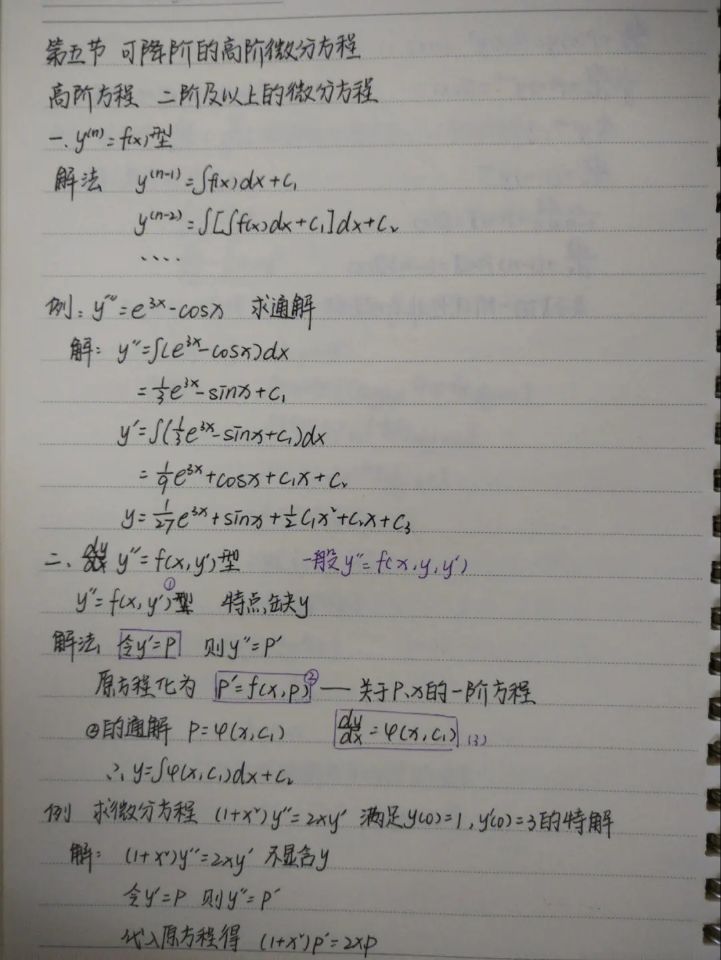 第五节 可降阶的高阶微分方程
高阶方程 二阶及以上的微分方程
一. y⁽ⁿ⁾=f(x)型
解法 y⁽ⁿ⁻¹⁾=∫f(x)dx+C₁
y⁽ⁿ⁻²⁾=∫[∫f(x)dx+C₁]dx+C₂
····
例: y'''=e³ˣ-cosx 求通解
解: y''=∫(e³ˣ-cosx)dx
=1/3e³ˣ-sinx+C₁
y'=∫(1/3e³ˣ-sinx+C₁)dx
=1/9e³ˣ+cosx+C₁x+C₂
y=1/27e³ˣ+sinx+1/2C₁x²+C₂x+C₃
二. y''=f(x,y')型 一般y''=f(x,y,y')
y''=f(x,y')①型 特点缺y
解法 令y'=P 则y''=P'
原方程化为 P'=f(x,p)② — 关于P、x的一阶方程
②的通解 P=φ(x,C₁) dy/dx=φ(x,C₁) (3)
∴y=∫φ(x,C₁)dx+C₂
例 求微分方程 (1+x²)y''=2xy' 满足y(0)=1,y'(0)=3的特解
解: (1+x²)y''=2xy' 不显含y
令y'=P 则y''=P'
代入原方程得 (1+x²)P'=2xp